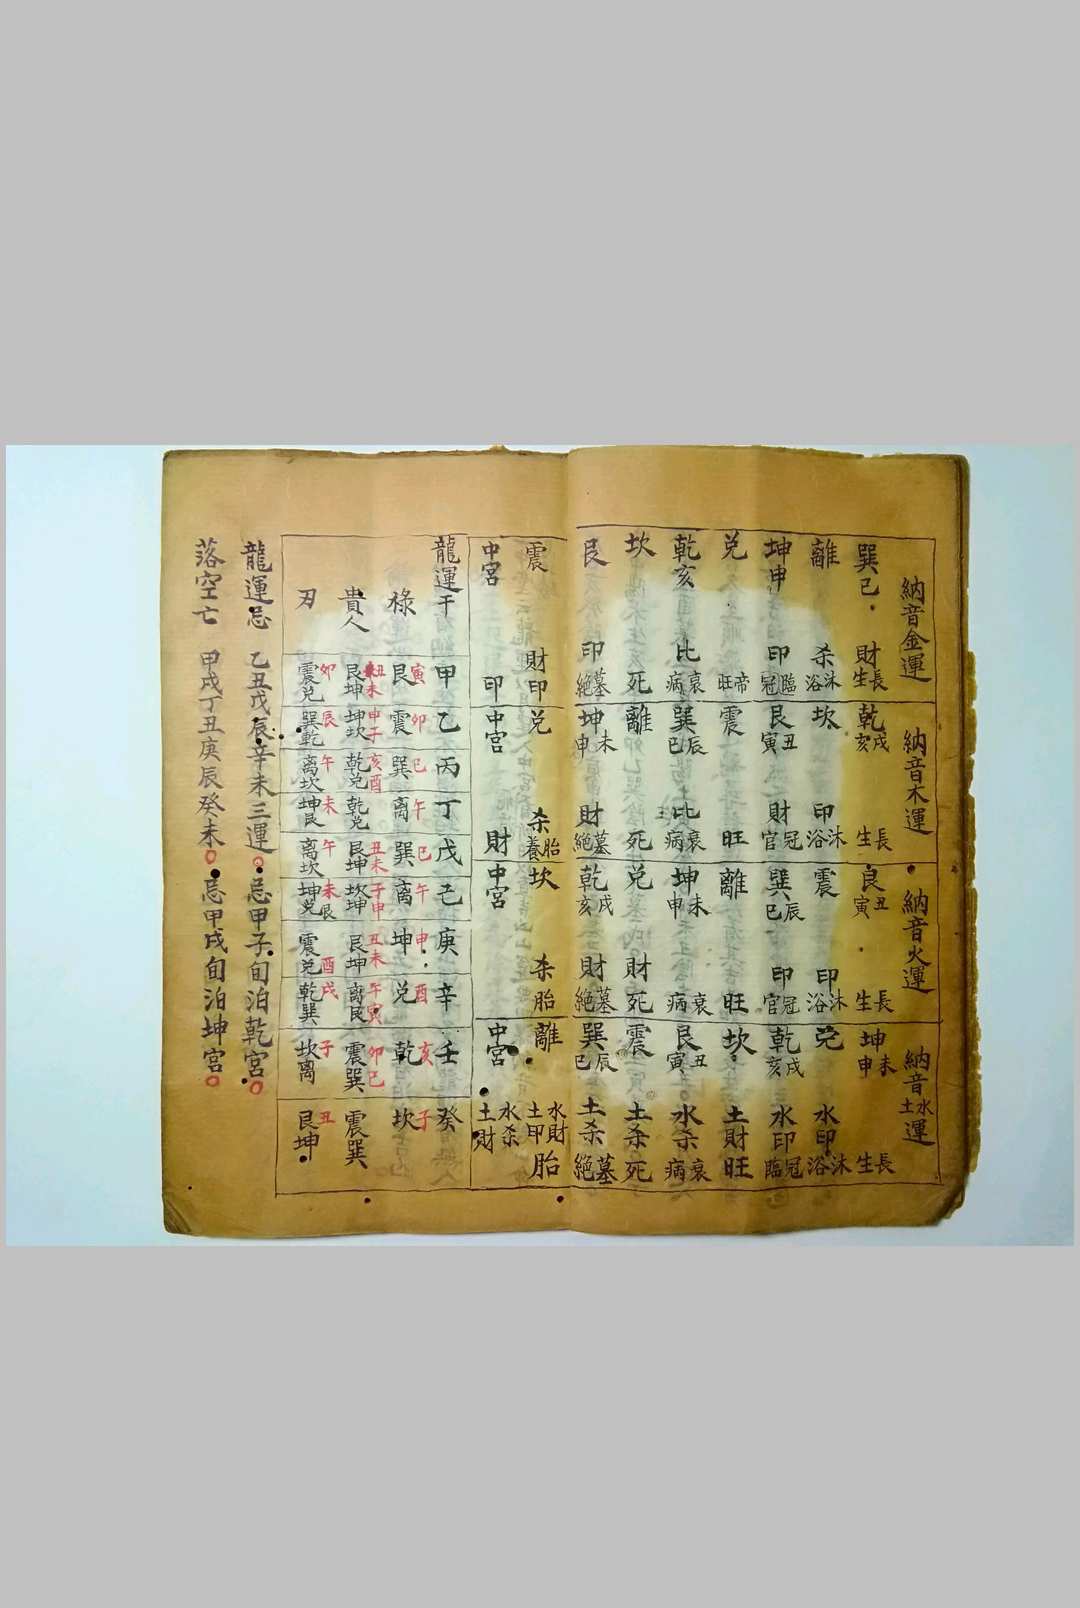 納音金運
巽巳 財 長生
離 杀 沐浴
坤申 印 臨冠
兌 帝旺
乾亥 比 衰病
坎 死
艮 印 墓絕
震 財印
中宮 印
納音木運
乾戌亥 長生
坎 印 沐浴
艮丑寅 財 冠官
震 旺
巽辰巳 比 衰病
離 死
坤未申 財 墓絕
兌 杀 胎養
中宮 財
納音火運
艮丑寅 長生
震 印 沐浴
巽辰巳 印 冠官
離 旺
坤未申 衰病
兌 財 死
乾戌亥 財 墓絕
坎 杀 胎
中宮
納音水土運
坤未申 長生
兌 水印 沐浴
乾戌亥 水印 冠臨
坎 土財 旺
艮丑寅 水杀 衰病
震 土杀 死
巽辰巳 土杀 墓絕
離 水財 土甲 胎
中宮 水杀 土財
龍運干 甲 乙 丙 丁 戊 己 庚 辛 壬 癸
祿 寅艮 卯震 巳巽 午离 巳巽 午离 申坤 酉兌 亥乾 子坎
貴人 丑未艮坤 申子坤坎 亥酉乾兌 乾兌 丑未艮坤 子申坎坤 丑未艮坤 午寅离艮 卯巳震巽 震巽
刃 卯震兌 辰巽乾 午离坎 未坤艮 午离坎 未辰坤兌 酉震兌 戌乾巽 子坎离 丑艮坤
龍運忌 乙丑戊辰辛未三運○忌甲子旬泊乾宮○
落空亡 甲戌丁丑庚辰癸未○忌甲戌旬泊坤宮○